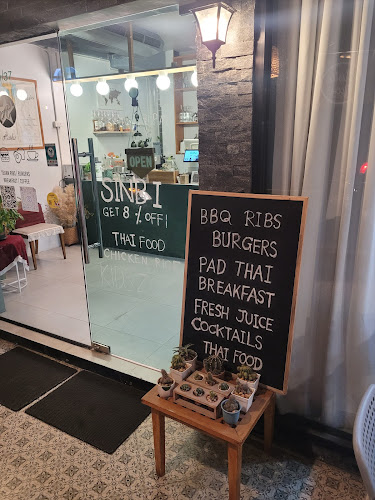 OPEN
SINBI
GET 8 % OFF!
THAI FOOD
CHICKEN RICE
BBQ RIBS
BURGERS
PAD THAI
BREAKFAST
FRESH JUICE
COCKTAILS
THAI FOOD